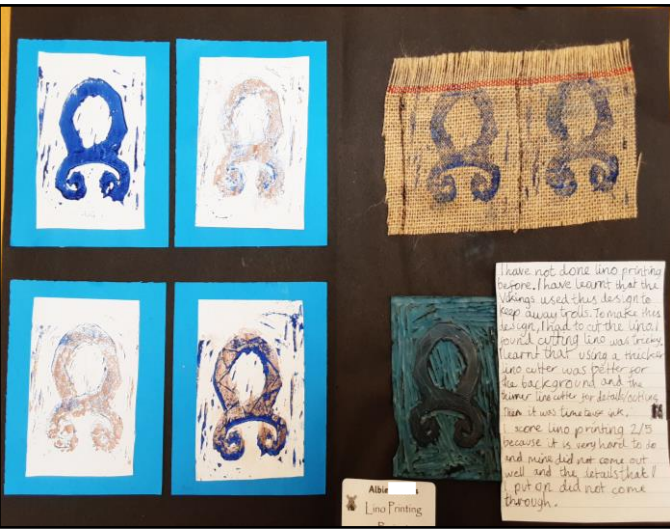 I have not done lino printing
before. I have learnt that the
Vikings used this design to
keep away trolls. To make this
design, I had to cut the lino. I
found cutting lino was tricky.
I learnt that using a thicker
lino cutter was better for
the background and the
thinner lino cutter for details/outline.
Then it was time to use ink.
I score lino printing 2/5
because it is very hard to do
and mine did not come out
well and the details that I
put on did not come
through.
Albie
Lino Printing